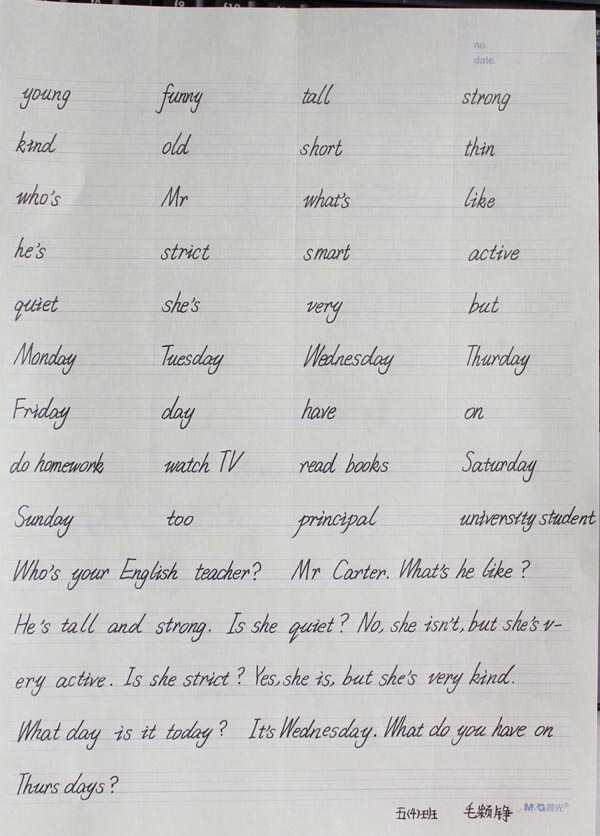 f9 f10
no.
date.
young funny tall strong
kind old short thin
who's Mr what's like
he's strict smart active
quiet she's very but
Monday Tuesday Wednesday Thurday
Friday day have on
do homework watch TV read books Saturday
Sunday too principal university student
Who's your English teacher? Mr Carter. What's he like?
He's tall and strong. Is she quiet? No, she isn't, but she's v-
ery active. Is she strict? Yes, she is, but she's very kind.
What day is it today? It's Wednesday. What do you have on
Thursdays?
五(4)班 毛颖 M&G晨光®